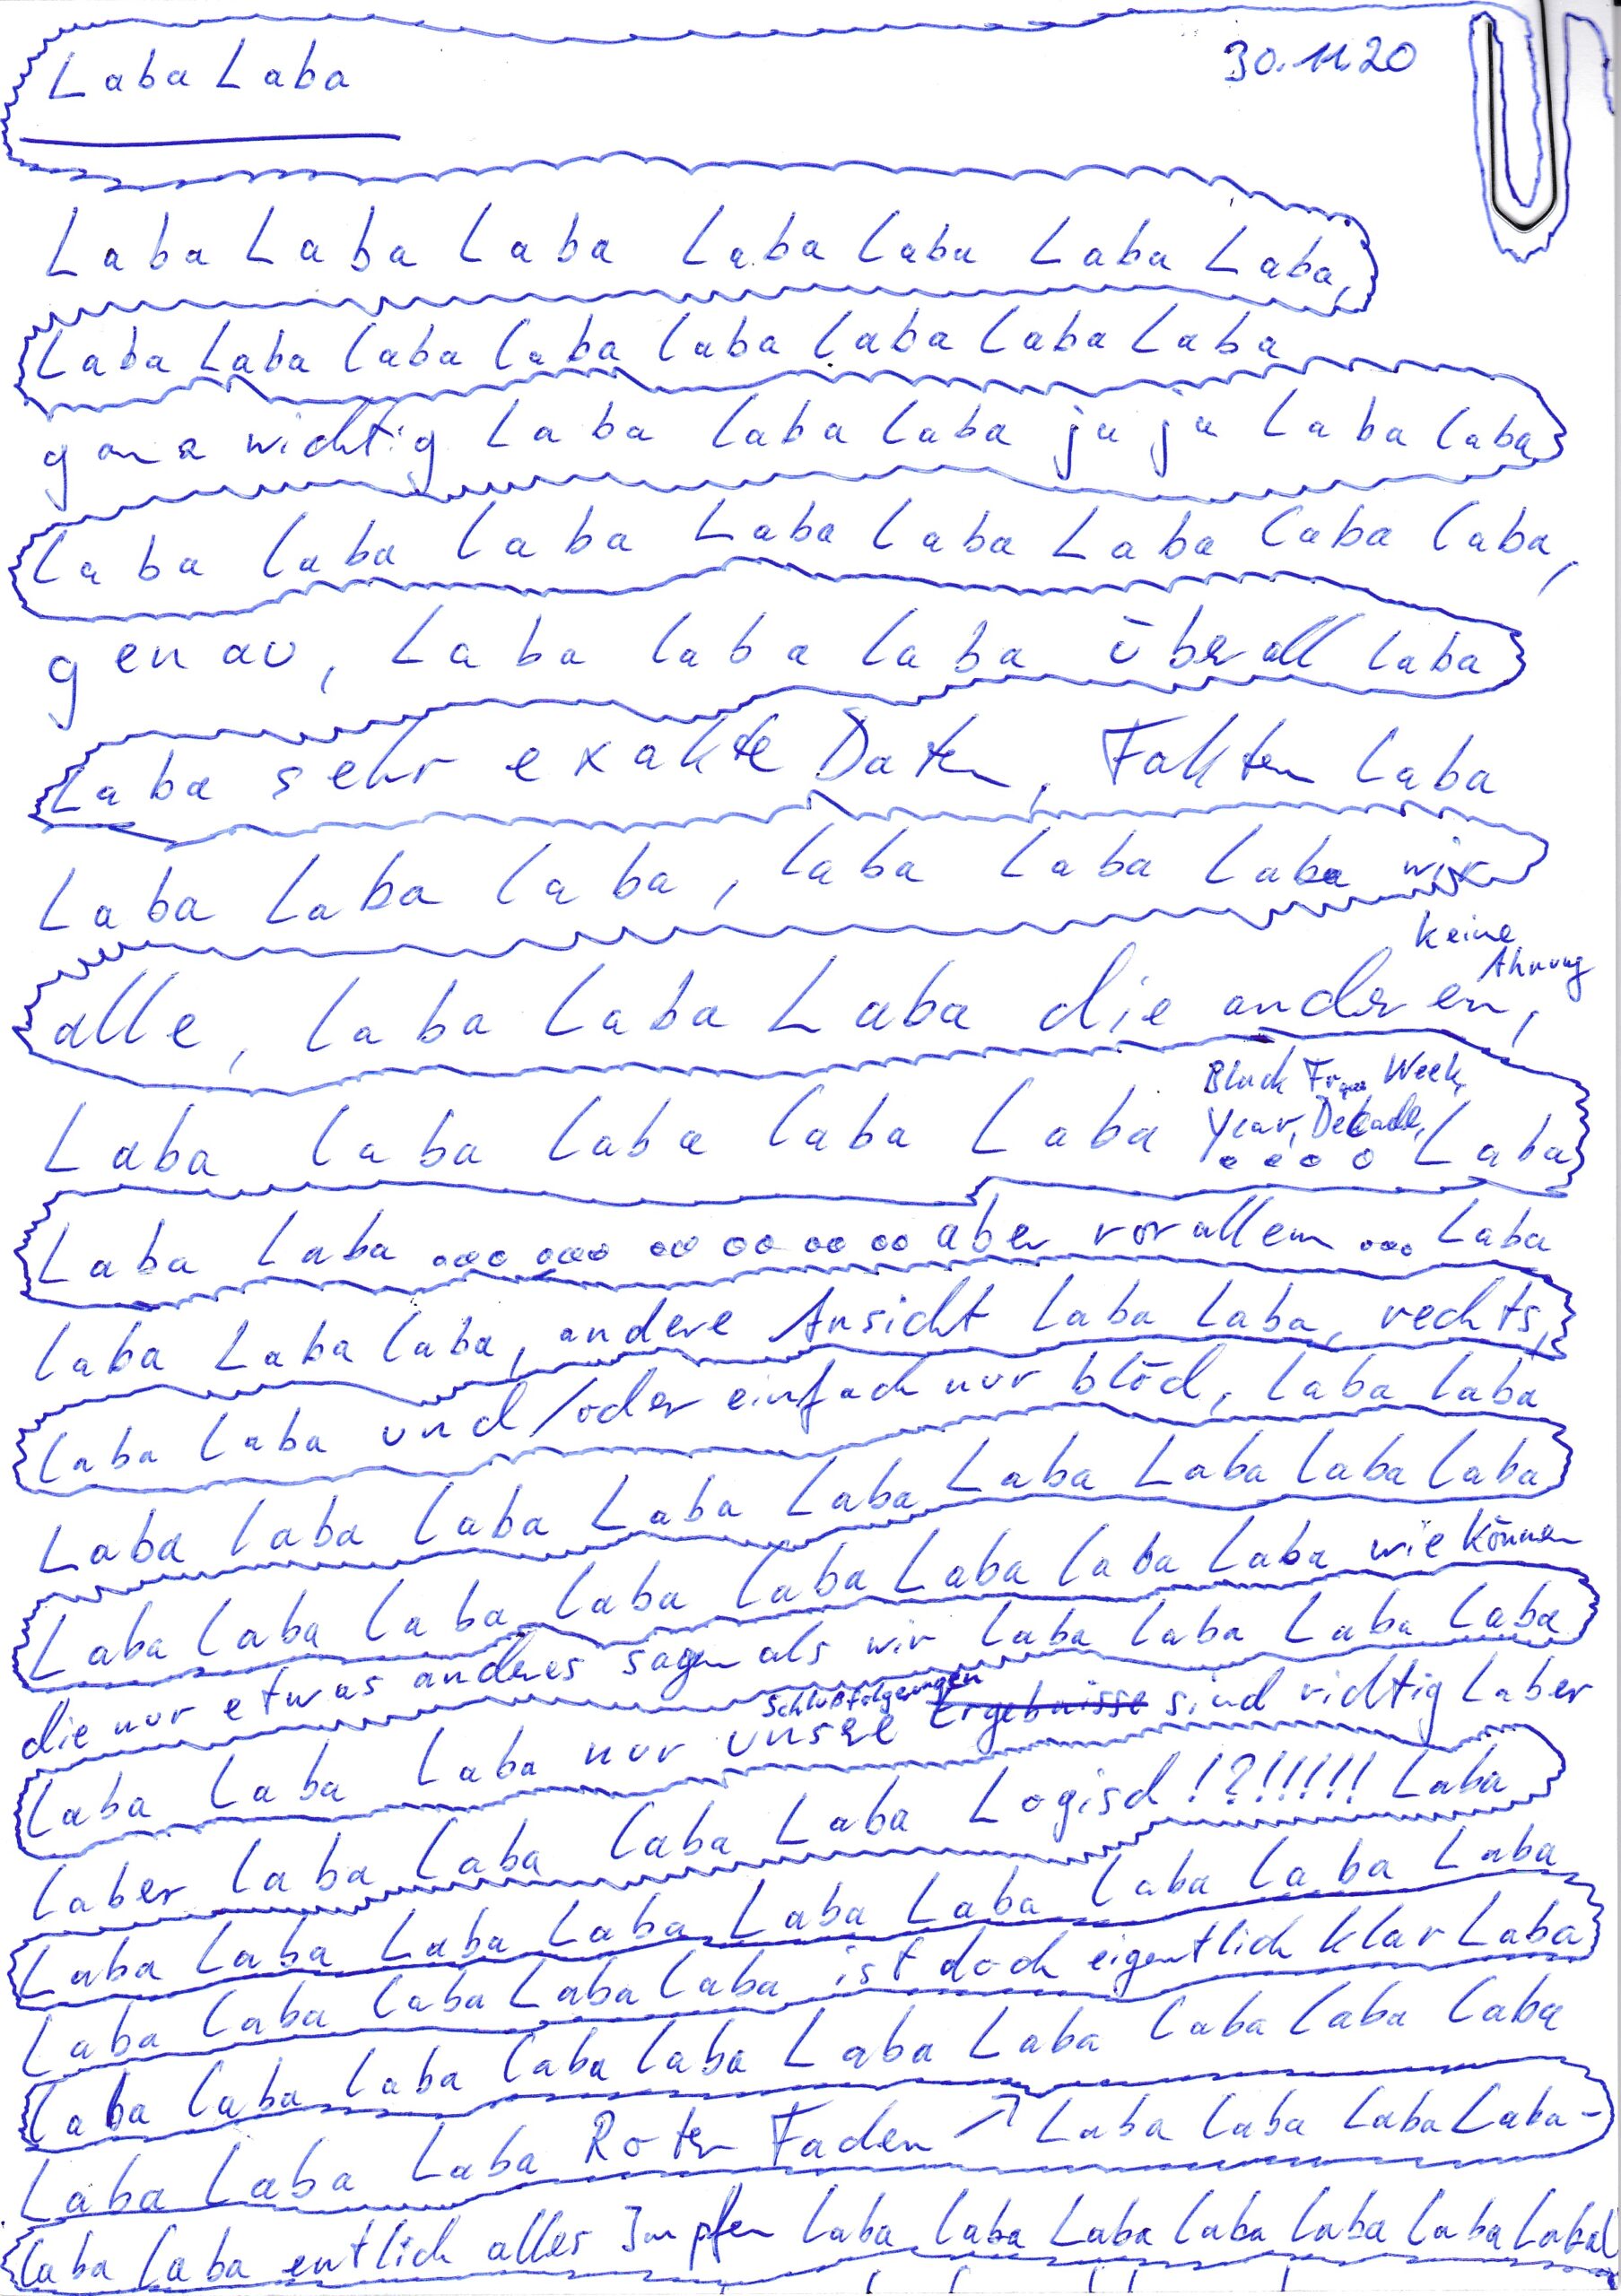 Laba Laba 30.11.20
Laba Laba Laba Laba Laba Laba Laba,
Laba Laba Laba Laba Laba Laba Laba Laba
ganz wichtig Laba Laba Laba ja ja Laba Laba
Laba Laba Laba Laba Laba Laba Laba Laba,
genau, Laba Laba Laba überall Laba
Laba sehr exakte Daten, Fakten Laba
Laba Laba Laba, Laba Laba Laba wir
keine
Ahnung
alle, Laba Laba Laba die anderen,
Black Week,
Year, Dekade,
Laba Laba Laba Laba Laba .... Laba
Laba Laba ooo ooo oo oo oo oo aber vor allem ooo Laba
Laba Laba Laba, andere Ansicht Laba Laba, rechts,
Laba Laba und/oder einfach nur blöd, Laba Laba
Laba Laba Laba Laba Laba Laba Laba Laba Laba
Laba Laba Laba Laba Laba Laba Laba Laba wie können
die nur etwas anderes sagen als wir Laba Laba Laba Laba
Schlußfolgerungen
Laba Laba Laba nur unsere Ergebnisse sind richtig Laber
Laber Laba Laba Laba Laba Logisch!?!!!!!! Laba
Laba Laba Laba Laba Laba Laba Laba Laba Laba
Laba Laba Laba Laba Laba ist doch eigentlich klar Laba
Laba Laba Laba Laba Laba Laba Laba Laba Laba Laba
Laba Laba Laba Roter Faden ↗ Laba Laba Laba Laba-
Laba Laba entlich alles Impfen Laba Laba Laba Laba Laba Laba Labal